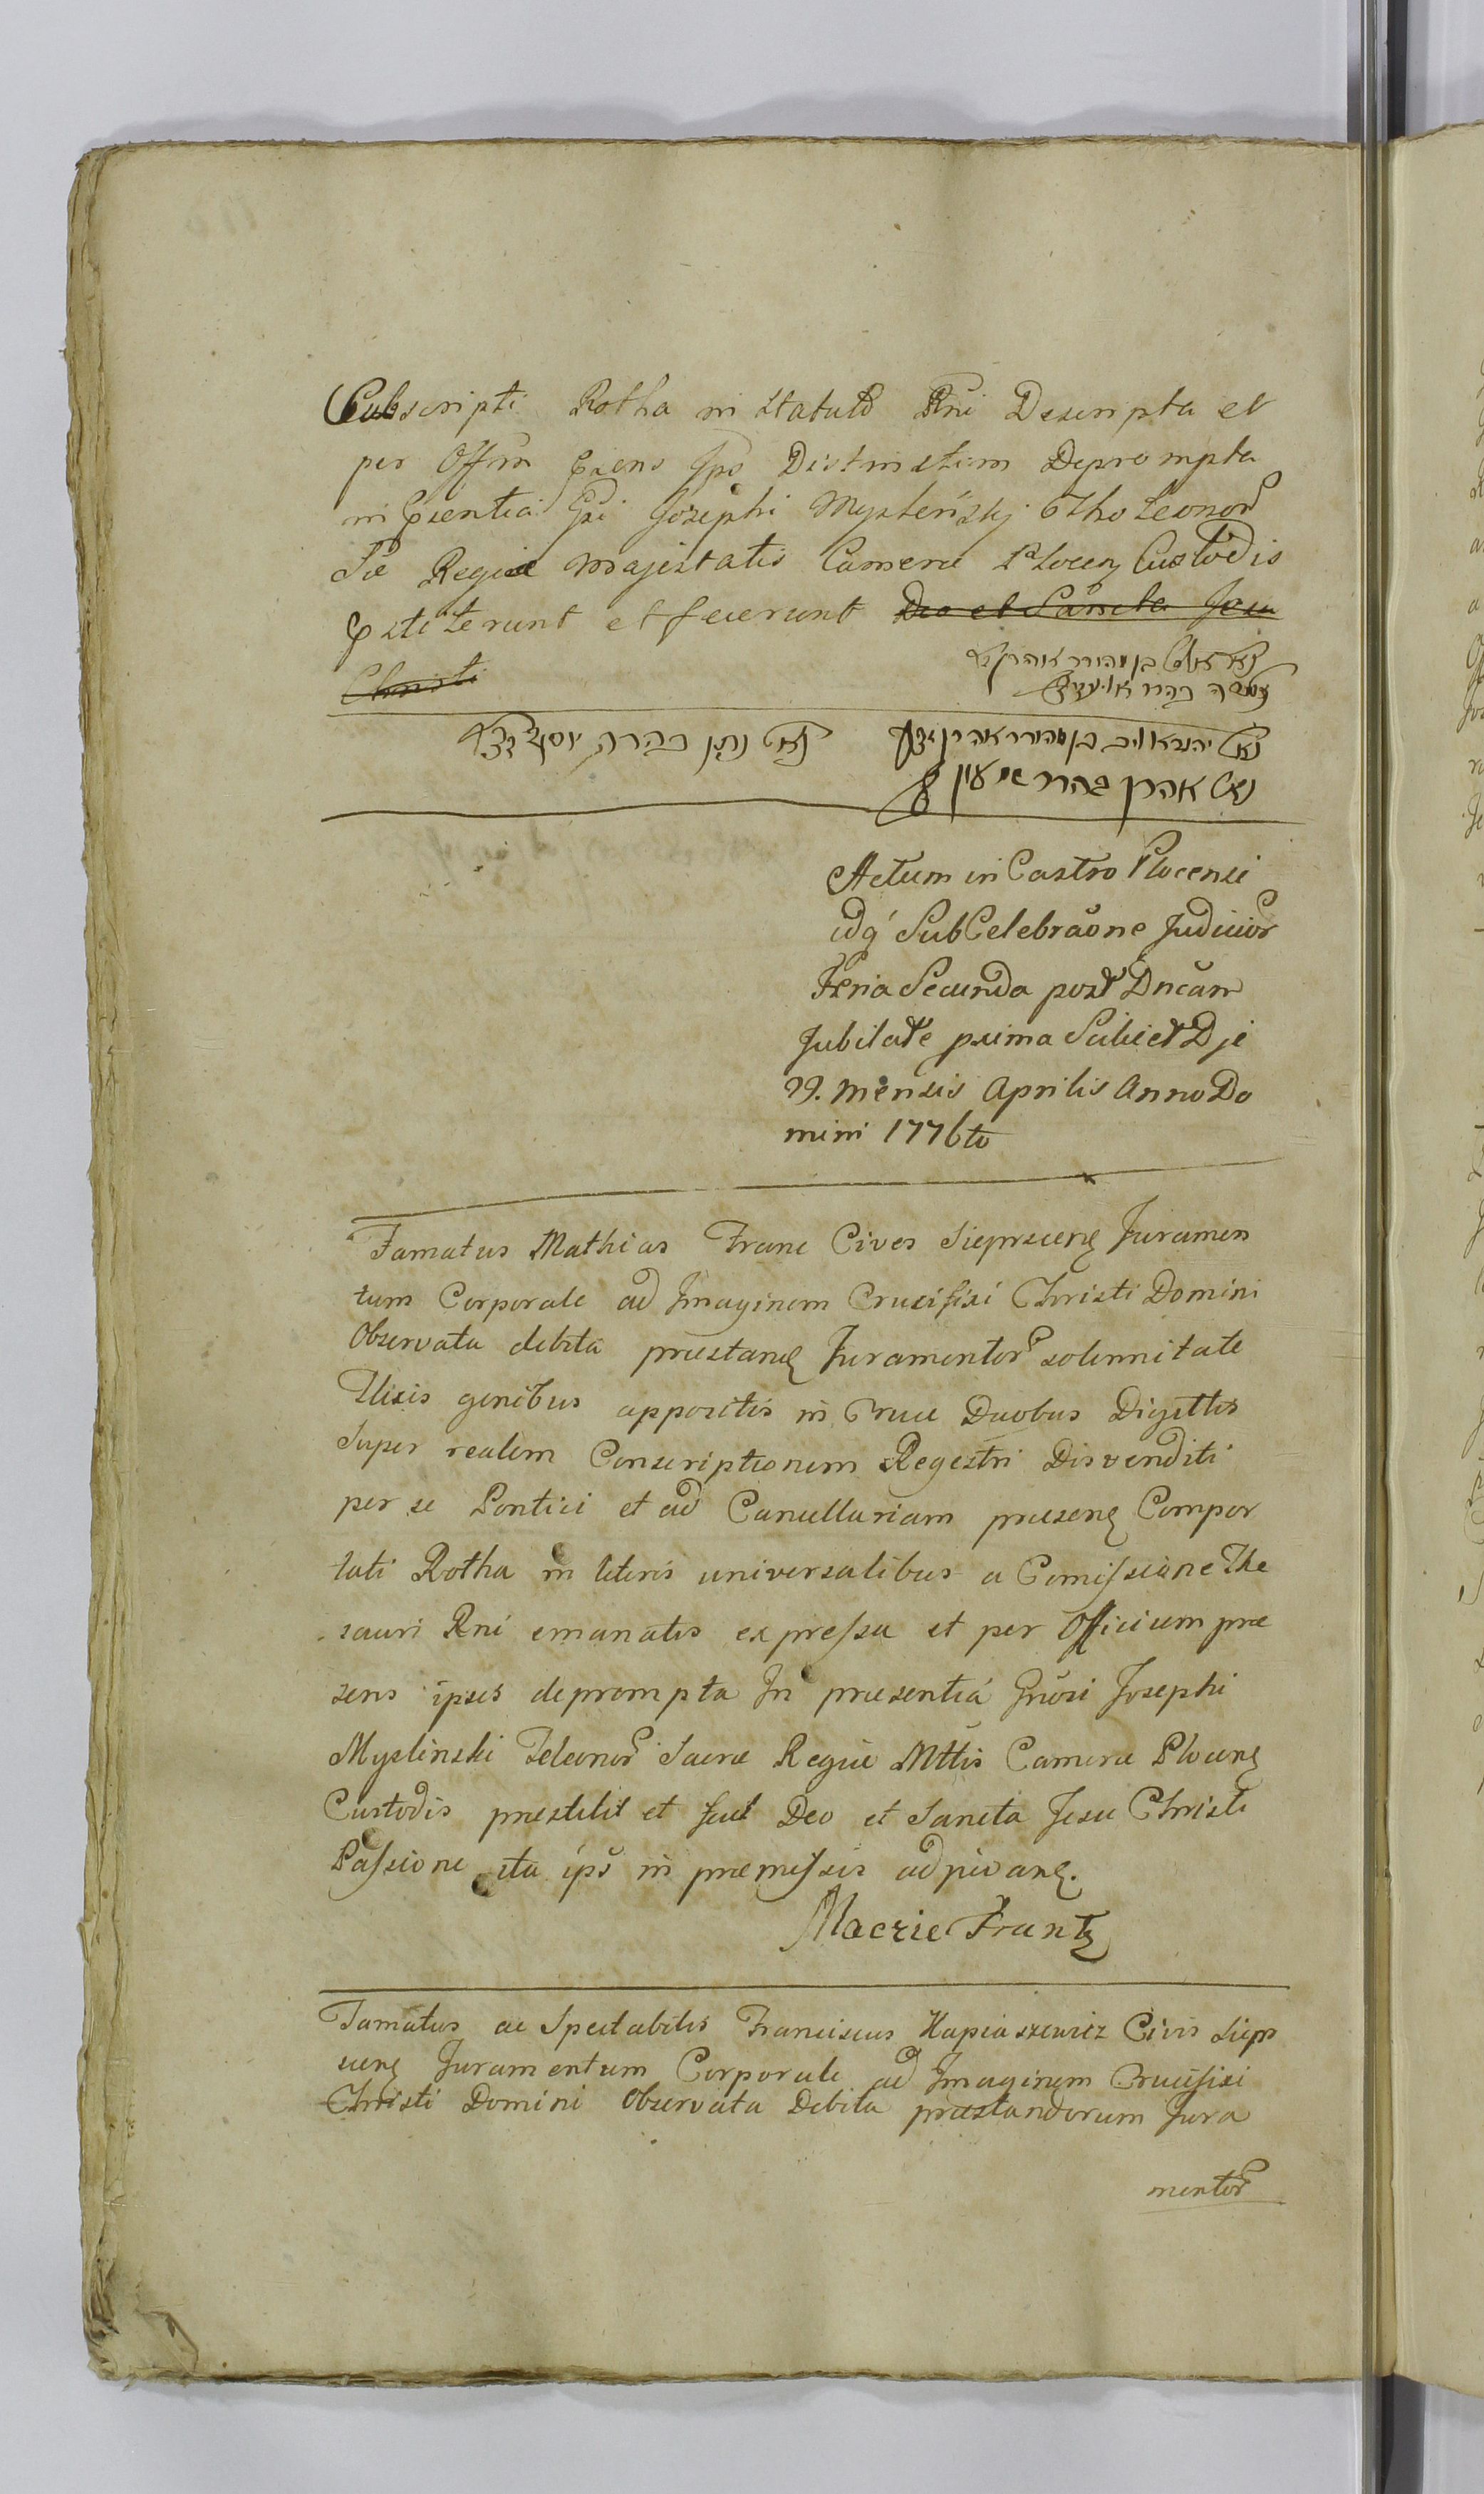 Subscripti Rotha in Statuto Rni Descripta et
per Offm Pns Ipso Distinctim Deprompta
in Psentia Gsi Josephi Mysleński Theleonor
Sae Regiae Majestatis Camerae Plocen Custodis
Pstiterunt et fecerunt Deo et Sancta Jesu
Christi
נאו נתן בהרר יוסף
נאו אהרן בהרר שמעון
Actum in Castro Plocensi
idq Sub Celebraone Judicior
Feria Secunda post Dncam
Jubilate prima Scilicet Die
29. Mensis Aprilis Anno Do
mini 1776to
Famatus Mathias Franc Cives Sieprscens Juramen
tum Corporale ad Imaginem Crucifixi Christi Domini
Observata debita praestand Juramentor solennitate
Flexis genibus appositis in Cruce Duobus Digittis
Super realem Conscriptionem Regestri Disvenditi
per se Pontici et ad Cancellariam praesens Compor
tati Rotha in literis universalibus a Comissione The
sauri Rni emanatis expressa et per Officium prae
sens ipsis deprompta In praesentia Gnosi Josephi
Myslinski Teleonor Sacrae Regiae Mttis Camerae Plocens
Custodis praestitit et fecit Deo et Sancta Jesu Christi
Passione ita ipso in praemissis adjuvans.
Maczie Frantz
Famatus ac Spectabilis Franciscus Kapiaszewicz Civis Siepr
scens Juramentum Corporale ad Imaginem Crucifixi
Christi Domini Observata Debita praestandorum Jura
mentor